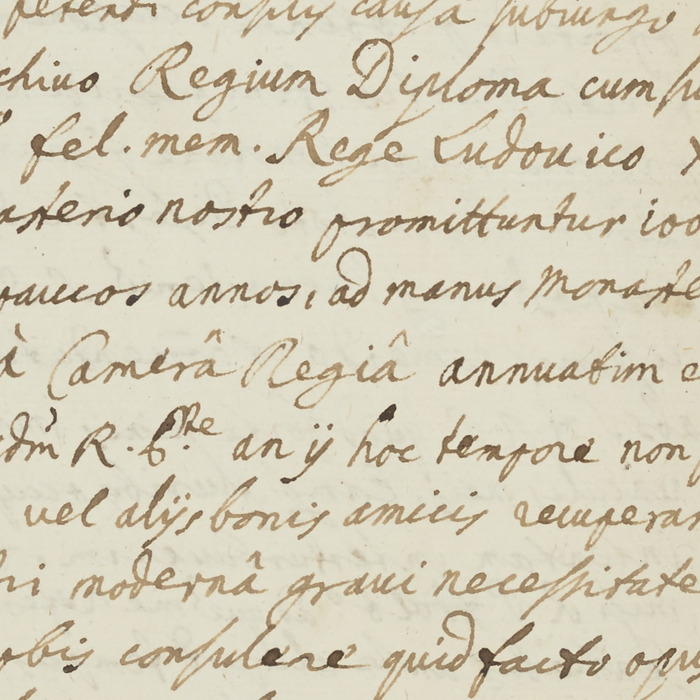 petendi consilij causâ subiungo
chiuo Regium Diploma cum su
fel. mem. Rege Ludouico X
asterio nostro promittuntur 100
paucos annos, ad manus Monaste
à Camerâ Regiâ annuatim e
R. an ij hoc tempore non
vel alijs bonis amicis recuperar
ri modernâ graui necessitate
obis consulere quid facto opus